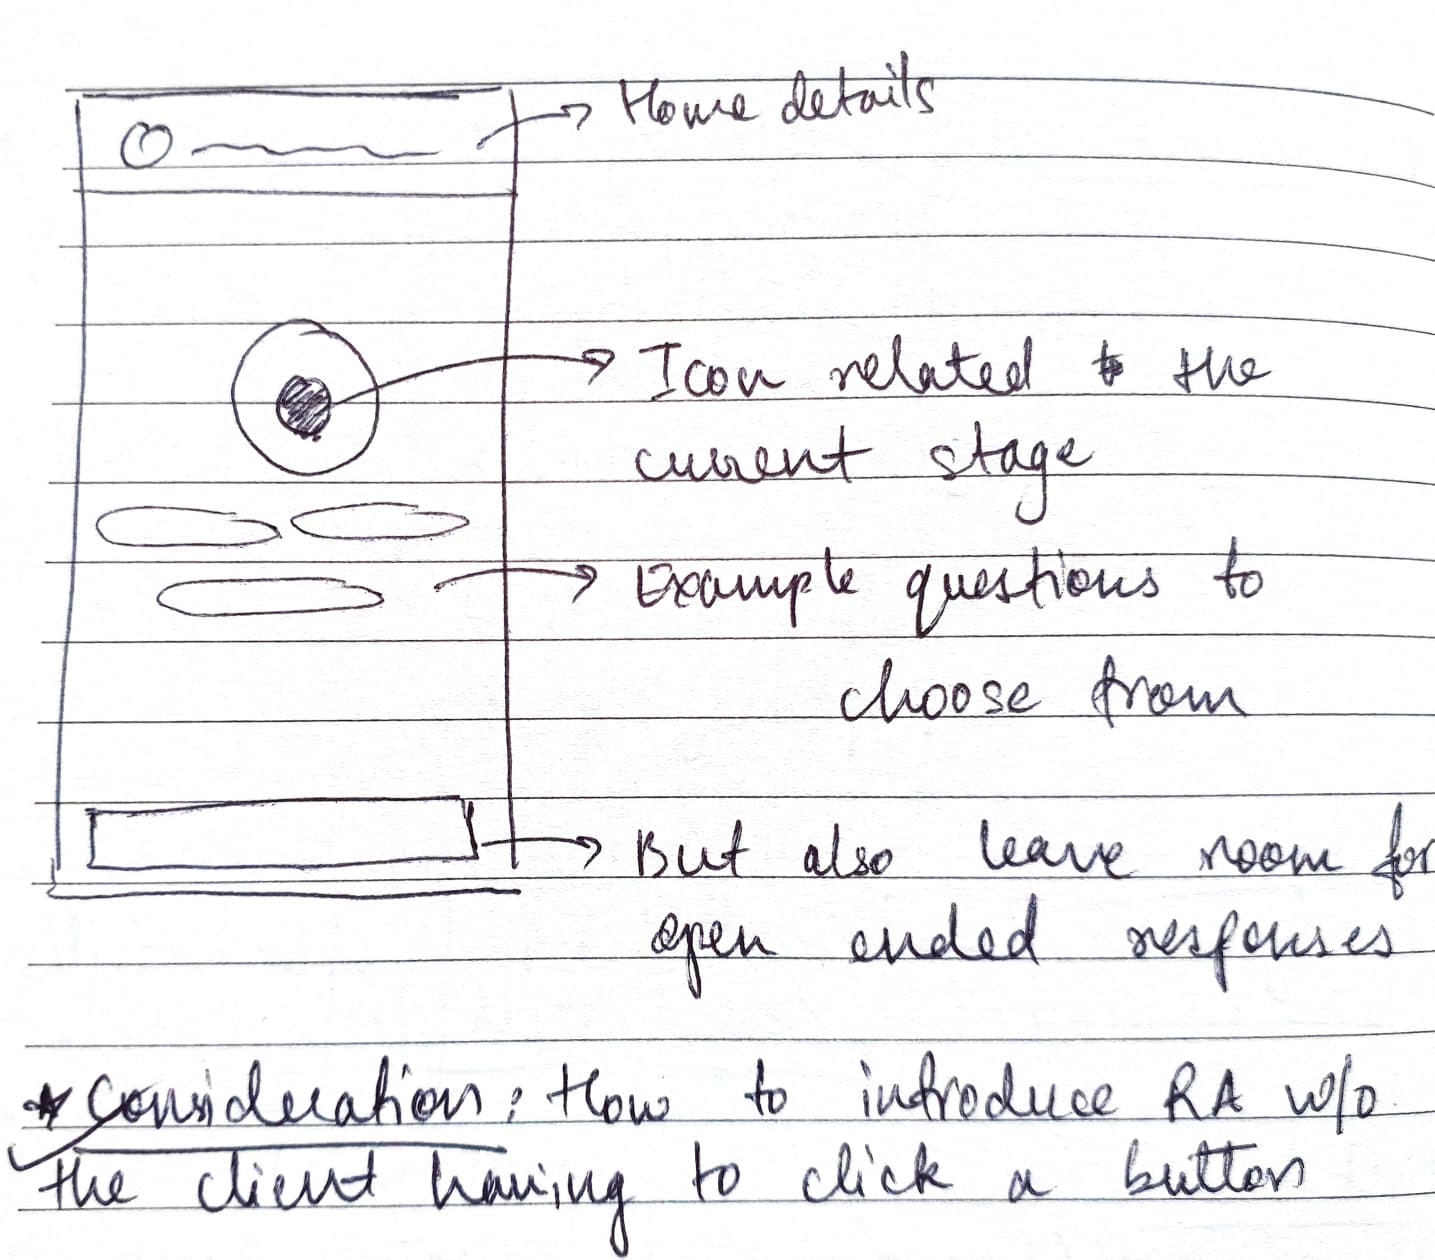 Home details
Icon related to the
current stage
Example questions to
choose from
But also leave room for
open ended responses
* Consideration: How to introduce RA w/o
the client having to click a button